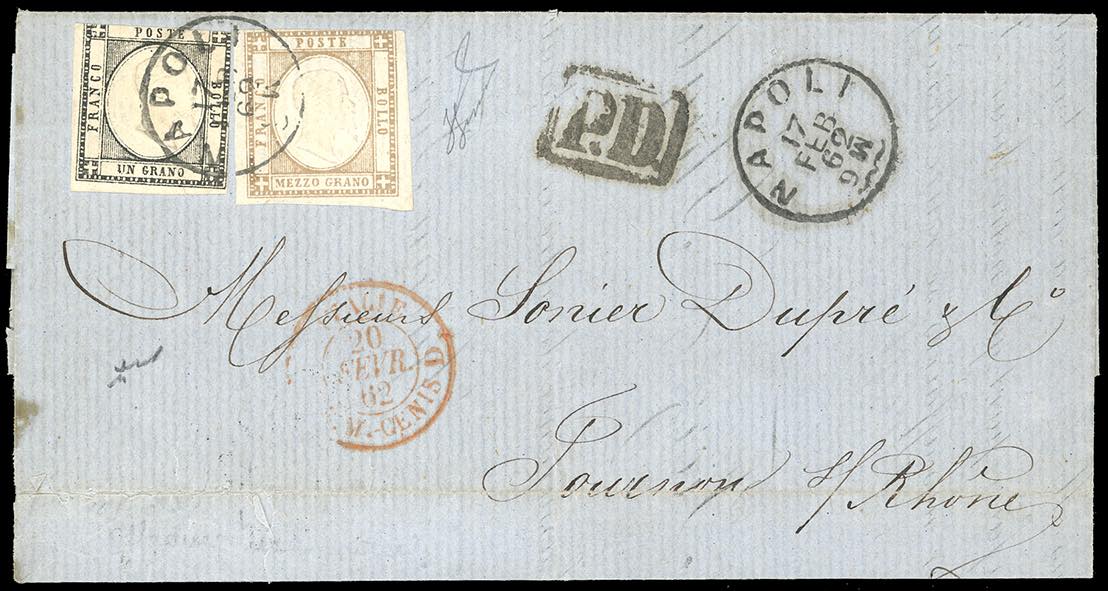 POSTE
FRANCO
BOLLO
UN GRANO
POSTE
FRANCO
BOLLO
MEZZO GRANO
NAPOLI
17
62
P.D
NAPOLI
17
FEB
62
9 M
Messieurs Sonier Dupré & Cº
ITALIE
20
FEVR.
62
M.-CENIS D
Tournon s/ Rhône